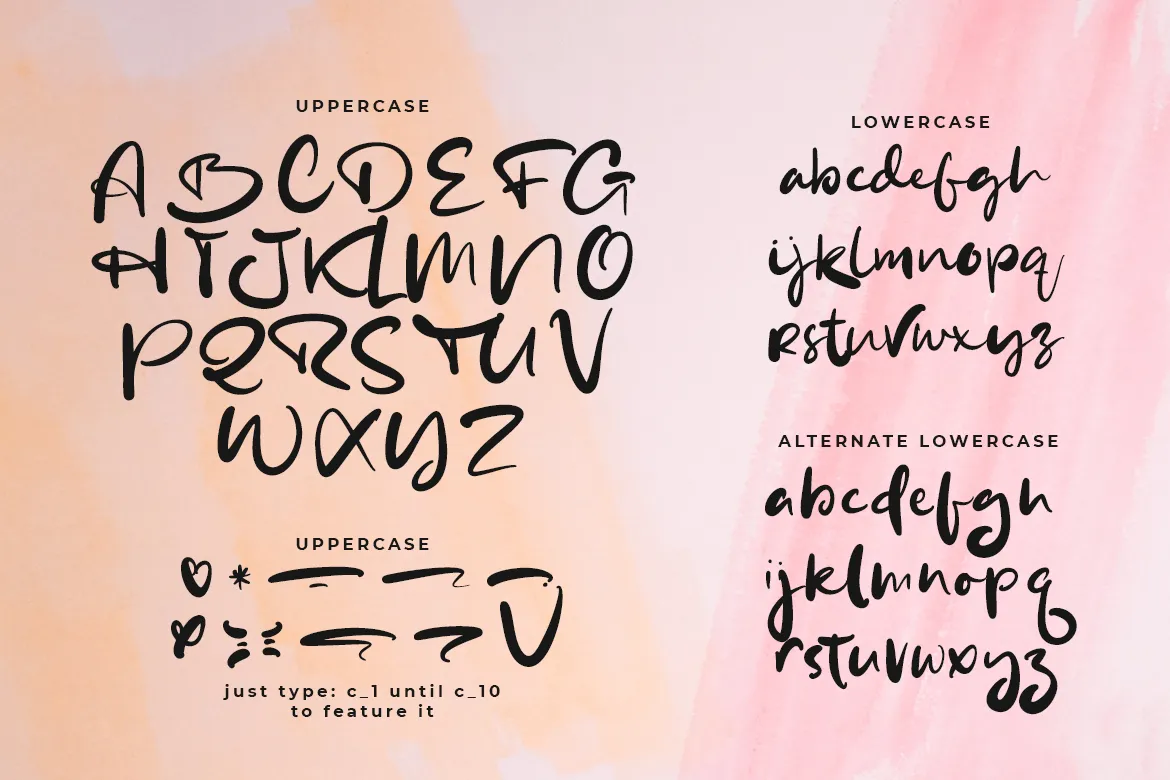 UPPERCASE
ABCDEFG
HIJKLMNO
PQRSTUV
WXYZ
UPPERCASE
just type: c_1 until c_10
to feature it
LOWERCASE
abcdefgh
ijklmnopq
rstuvwxyz
ALTERNATE LOWERCASE
abcdefgh
ijklmnopq
rstuvwxyz